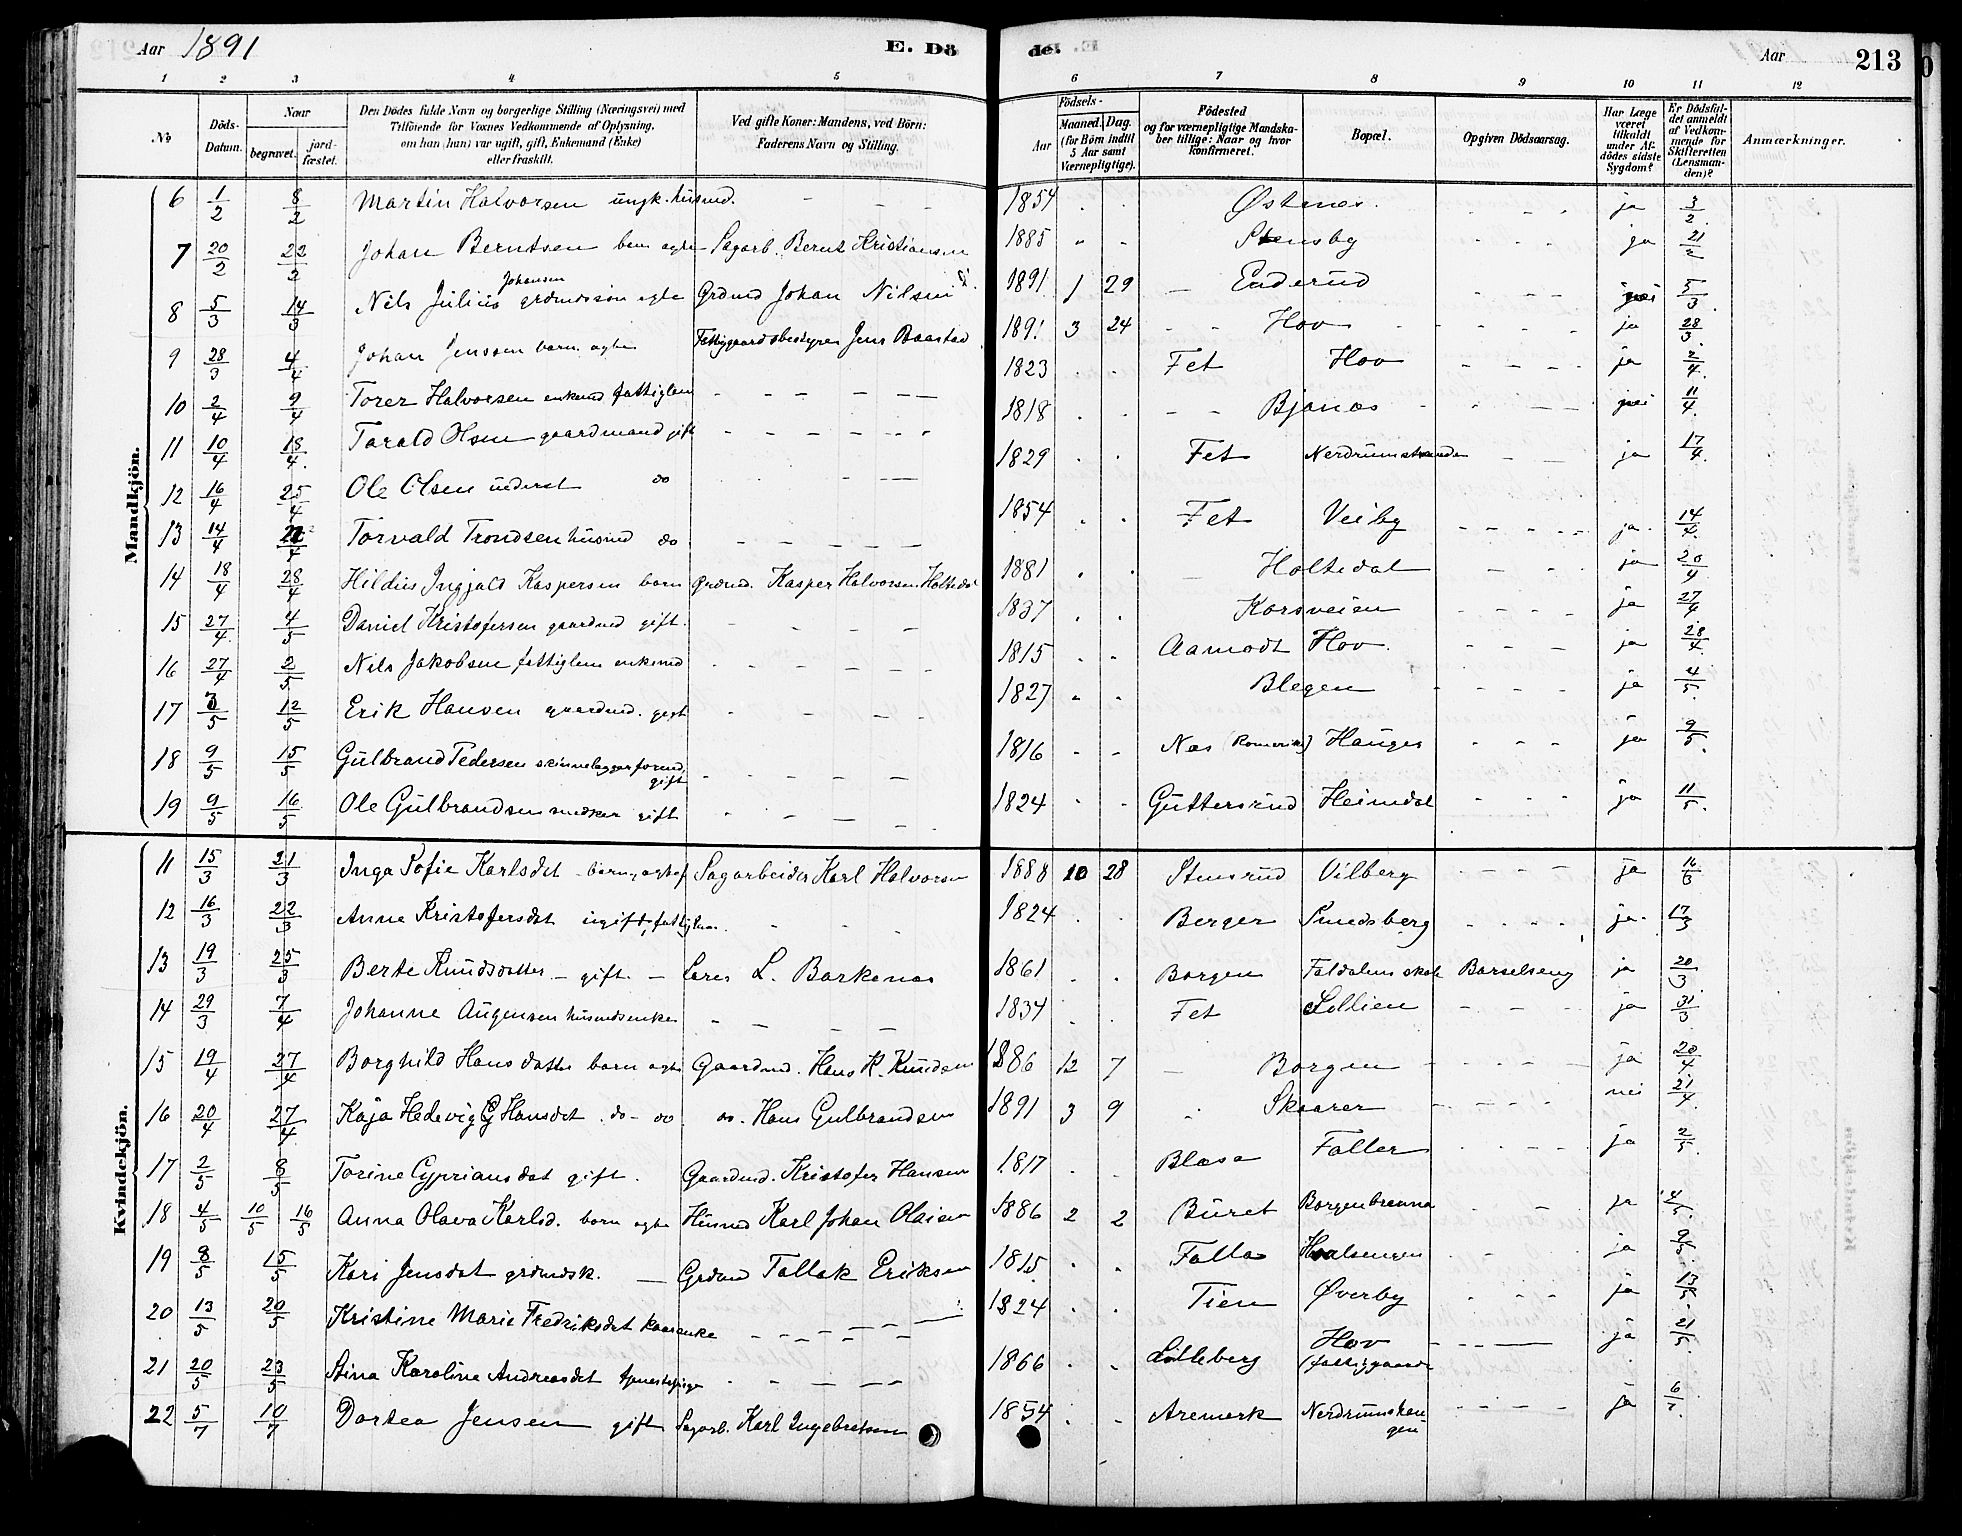 Aar 1891 E. Dö
1 2 3 4 5
No
Döds-Datum.
Naar
begravet.
jord-fæstet.
Den Dödes fulde Navn og borgerlige Stilling (Næringsvei) med
Tilföiende for Voxnes Vedkommende af Oplysning,
om han (hun) var ugift, gift, Enkemand (Enke)
eller fraskilt.
Ved gifte Koner: Mandens, ved Börn:
Faderens Navn og Stilling.
Mandkjön.
6 1/2 8/2 Martin Halvorsen ungk. husmd.
7 20/2 22/2 Johan Berntsen barn ægte Sagarb. Bernt Kristiansen
Johansen
8 5/3 14/3 Nils Julius grdmdssøn ægte Grdmd Johan Nilsen
9 28/3 4/4 Johan Jensen barn ægte Fattiggaardsbestyrer Jens Baastad
10 2/4 9/4 Torer Halvorsen enkemd fattiglem
11 10/4 18/4 Tarald Olsen gaardmand gift
12 16/4 25/4 Ole Olsen inderst do
13 14/4 Torvald Trondsen husmd do
14 18/4 28/4 Hildus Ingjald Kaspersen barn Grdmd. Kasper Halvorsen Holtedal
15 27/4 4/5 Daniel Kristofersen gaardmd gift.
16 27/4 2/5 Nils Jakobsen fattiglem enkemd
17 3/5 12/5 Erik Hansen gaardmd. gift
18 9/5 15/5 Gulbrand Pedersen skinnelæggerformd.
gift
19 9/5 16/5 Ole Gulbrandsen snedker gift
Kvindekjön.
11 15/3 21/3 Inga Sofie Karlsdat - barn, ægtef Sagarbeider Karl Halvorsen
12 16/3 22/3 Anne Kristofersdat ugift, fattiglem.
13 19/3 25/3 Berte Knudsdatter - gift - Lærer L. Barkenæs
14 29/3 7/4 Johanne Augensen husmdsenke
15 19/4 27/4 Borghild Hansdatter barn ægte Gaardmd. Hans K. Knudsen
16 20/4 27/4 Kaja Hedevig G Hansdat. do - do do. Hans Gulbrandsen
17 2/5 8/5 Torine Cypriansdat gift. Gaardmd. Kristofer Hansen
18 4/5 10/5 16/5 Anna Olava Karlsd. barn ægte Husmd Karl Johan Olaisen
19 8/5 15/5 Kari Jensdat grdmdsk. - Grdmd Tallak Eriksen
20 13/5 20/5 Kristine Marie Fredriksdat kaarenke
21 20/5 23/5 Stina Karoline Andreasdat tjenestepige
22 5/7 10/7 Dortea Jensen gift Sagarb. Karl Ingebretsen
de. Aar 213
6 7 8 9 10 11 12
Födsels-
Aar
Maaned. Dag.
(for Börn indtil
5 Aar samt
Værnepligtige).
Födested
og for værnepligtige Mandska-
ber tillige: Naar og hvor
konfirmeret.
Bopæl.
Opgiven Dödsaarsag.
Har Læge
været
tilkaldt
under Af-
dödes sidste
Sygdom?
Er Dödsfal-
det anmeldt
af Vedkom-
mende for
Skifteretten
(Lensman-
den)?
Anmærkninger.
1854 Østenes. ja 3/2
1885 Stensby ja 21/2
1891 1 29 Enderud nei 5/3
1891 3 24 Hov ja 28/3
1823 Fet Hov ja 2/4
1818 Bjanæs nei 11/4
1829 Fet Nerdrumstranden ja 17/4
1854 Fet Veiby ja 14/4
1881 Holtedal ja 20/4
1837 Korsveien ja 27/4
1815 Aamodt Hov. ja 28/4
1827 Blegen ja 4/5
1816 Næs (Romerike) Hauger ja 9/5
1824 Guttersrud Heimdal ja 11/5
1888 10 28 Stensrud Vilberg ja 16/3
1824 Berger Smedsberg ja 17/3
1861 Borgen Faldalens skole Barselseng ja 20/3
1834 Fet Lollien ja 31/3
1886 12 7 Borgen ja 20/4
1891 3 9 Skaarer nei 21/4
1817 Blæsa Faller ja 2/5
1886 2 2 Buret Borgenbrænna ja 4/5
1815 Falla ja 9/5
1824 Tien Øverby ja 13/5
1866 Lilleberg Hov ja 21/5
(fattiggaard)
1854 Aremark Nerdrumshau- ja
gen